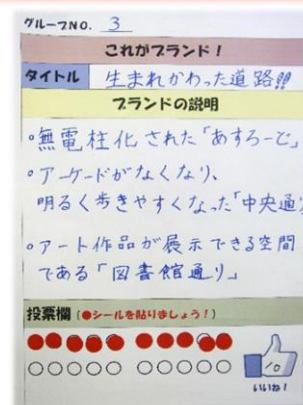 グループNO. 3
これがブランド!
タイトル 生まれかわった道路!!
ブランドの説明
・無電柱化された「あすろーど」
・アーケードがなくなり、
明るく歩きやすくなった「中央通
・アート作品が展示できる空間
である「図書館通り」
投票欄(●シールを貼りましょう!)
いいね!